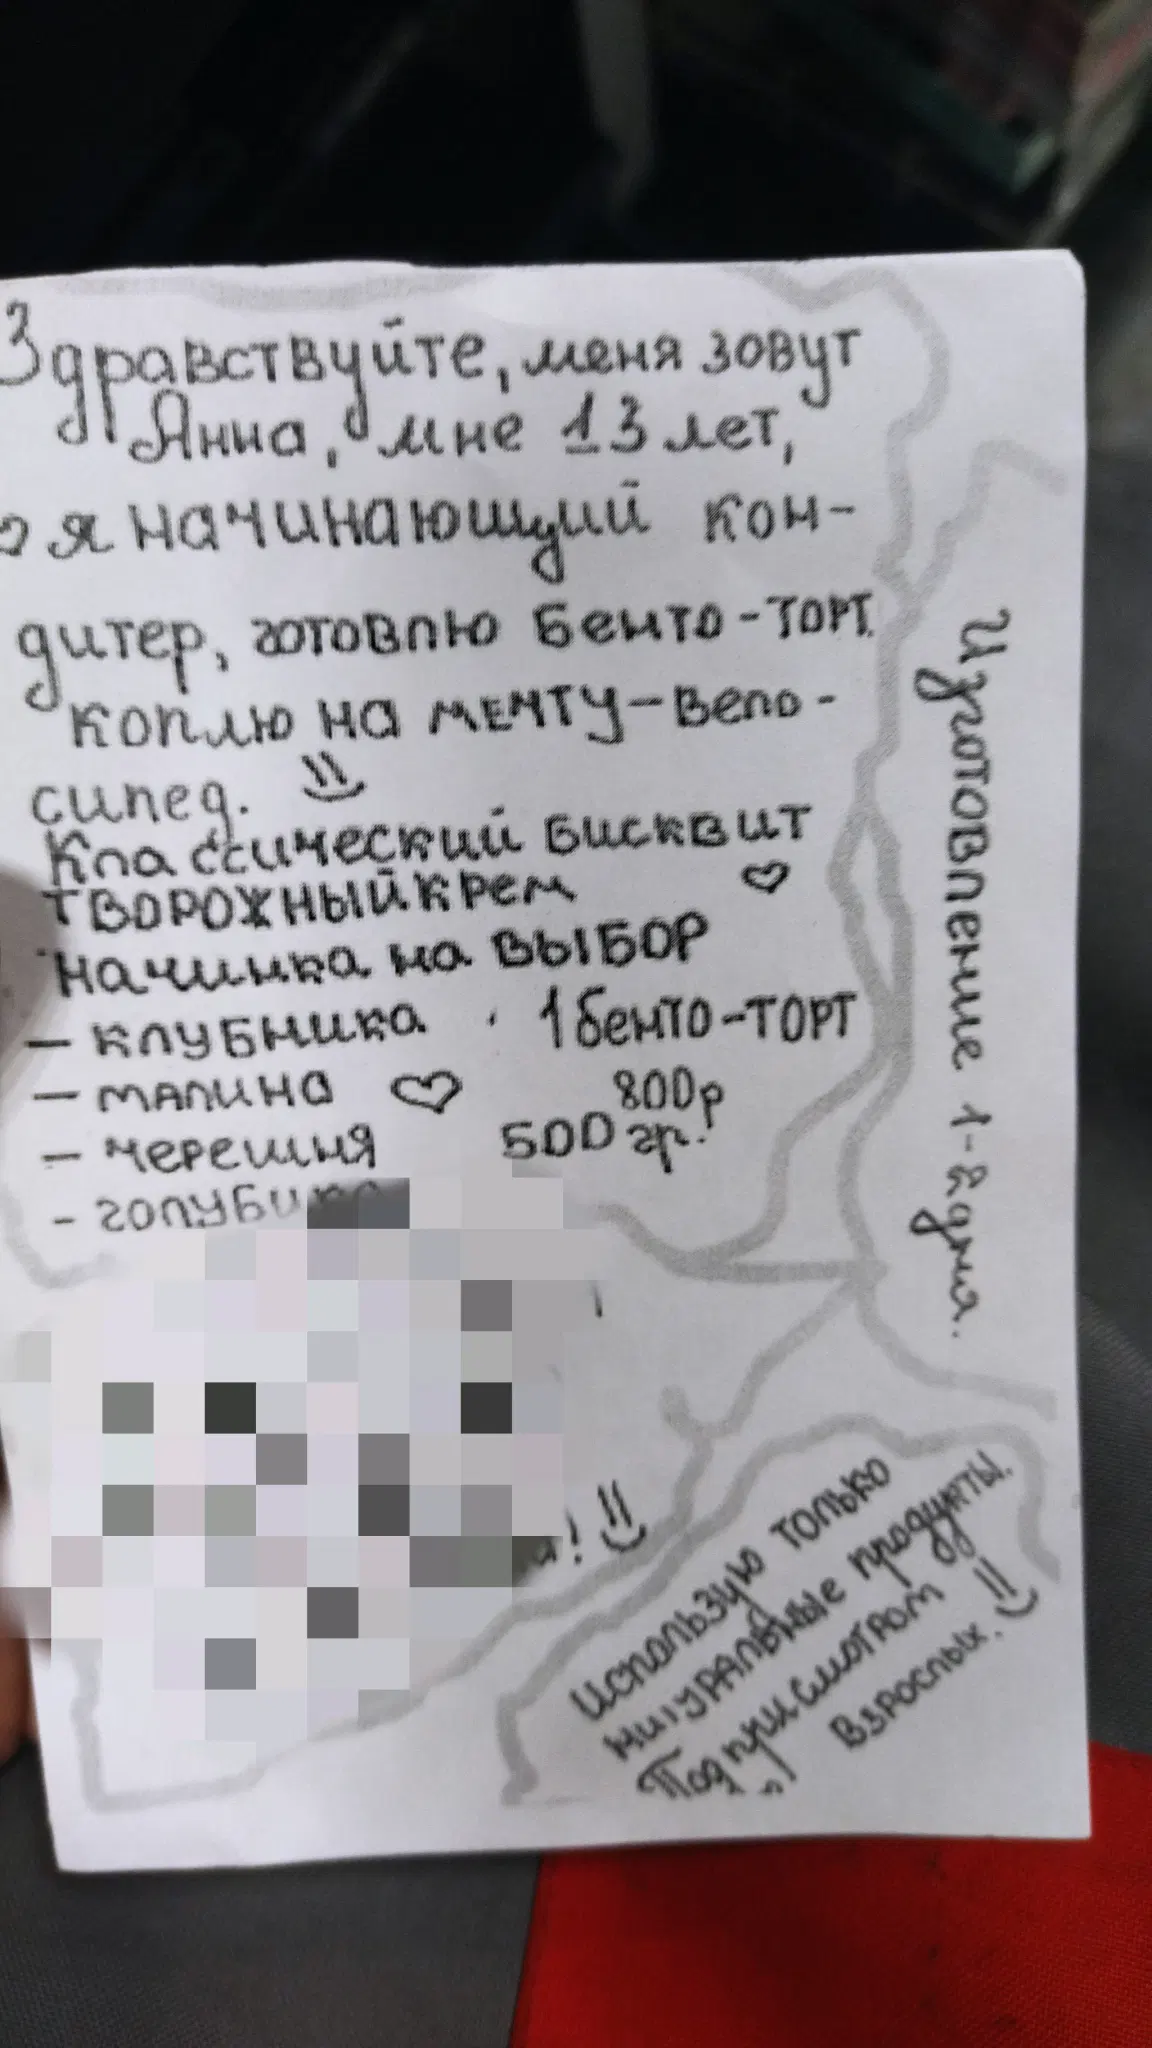 Здравствуйте, меня зовут
Анна, мне 13 лет,
я начинающий кон-
дитер, готовлю бенто-торт.
коплю на мечту-вело-
сипед.
Классический бисквит
творожный крем
начинка на выбор
- клубника
- малина
- черешня
- голубика
1 бенто-торт
800р
500 гр.!
Изготовление 1-2 дня.
Использую только
натуральные продукты.
Под присмотром
взрослых.